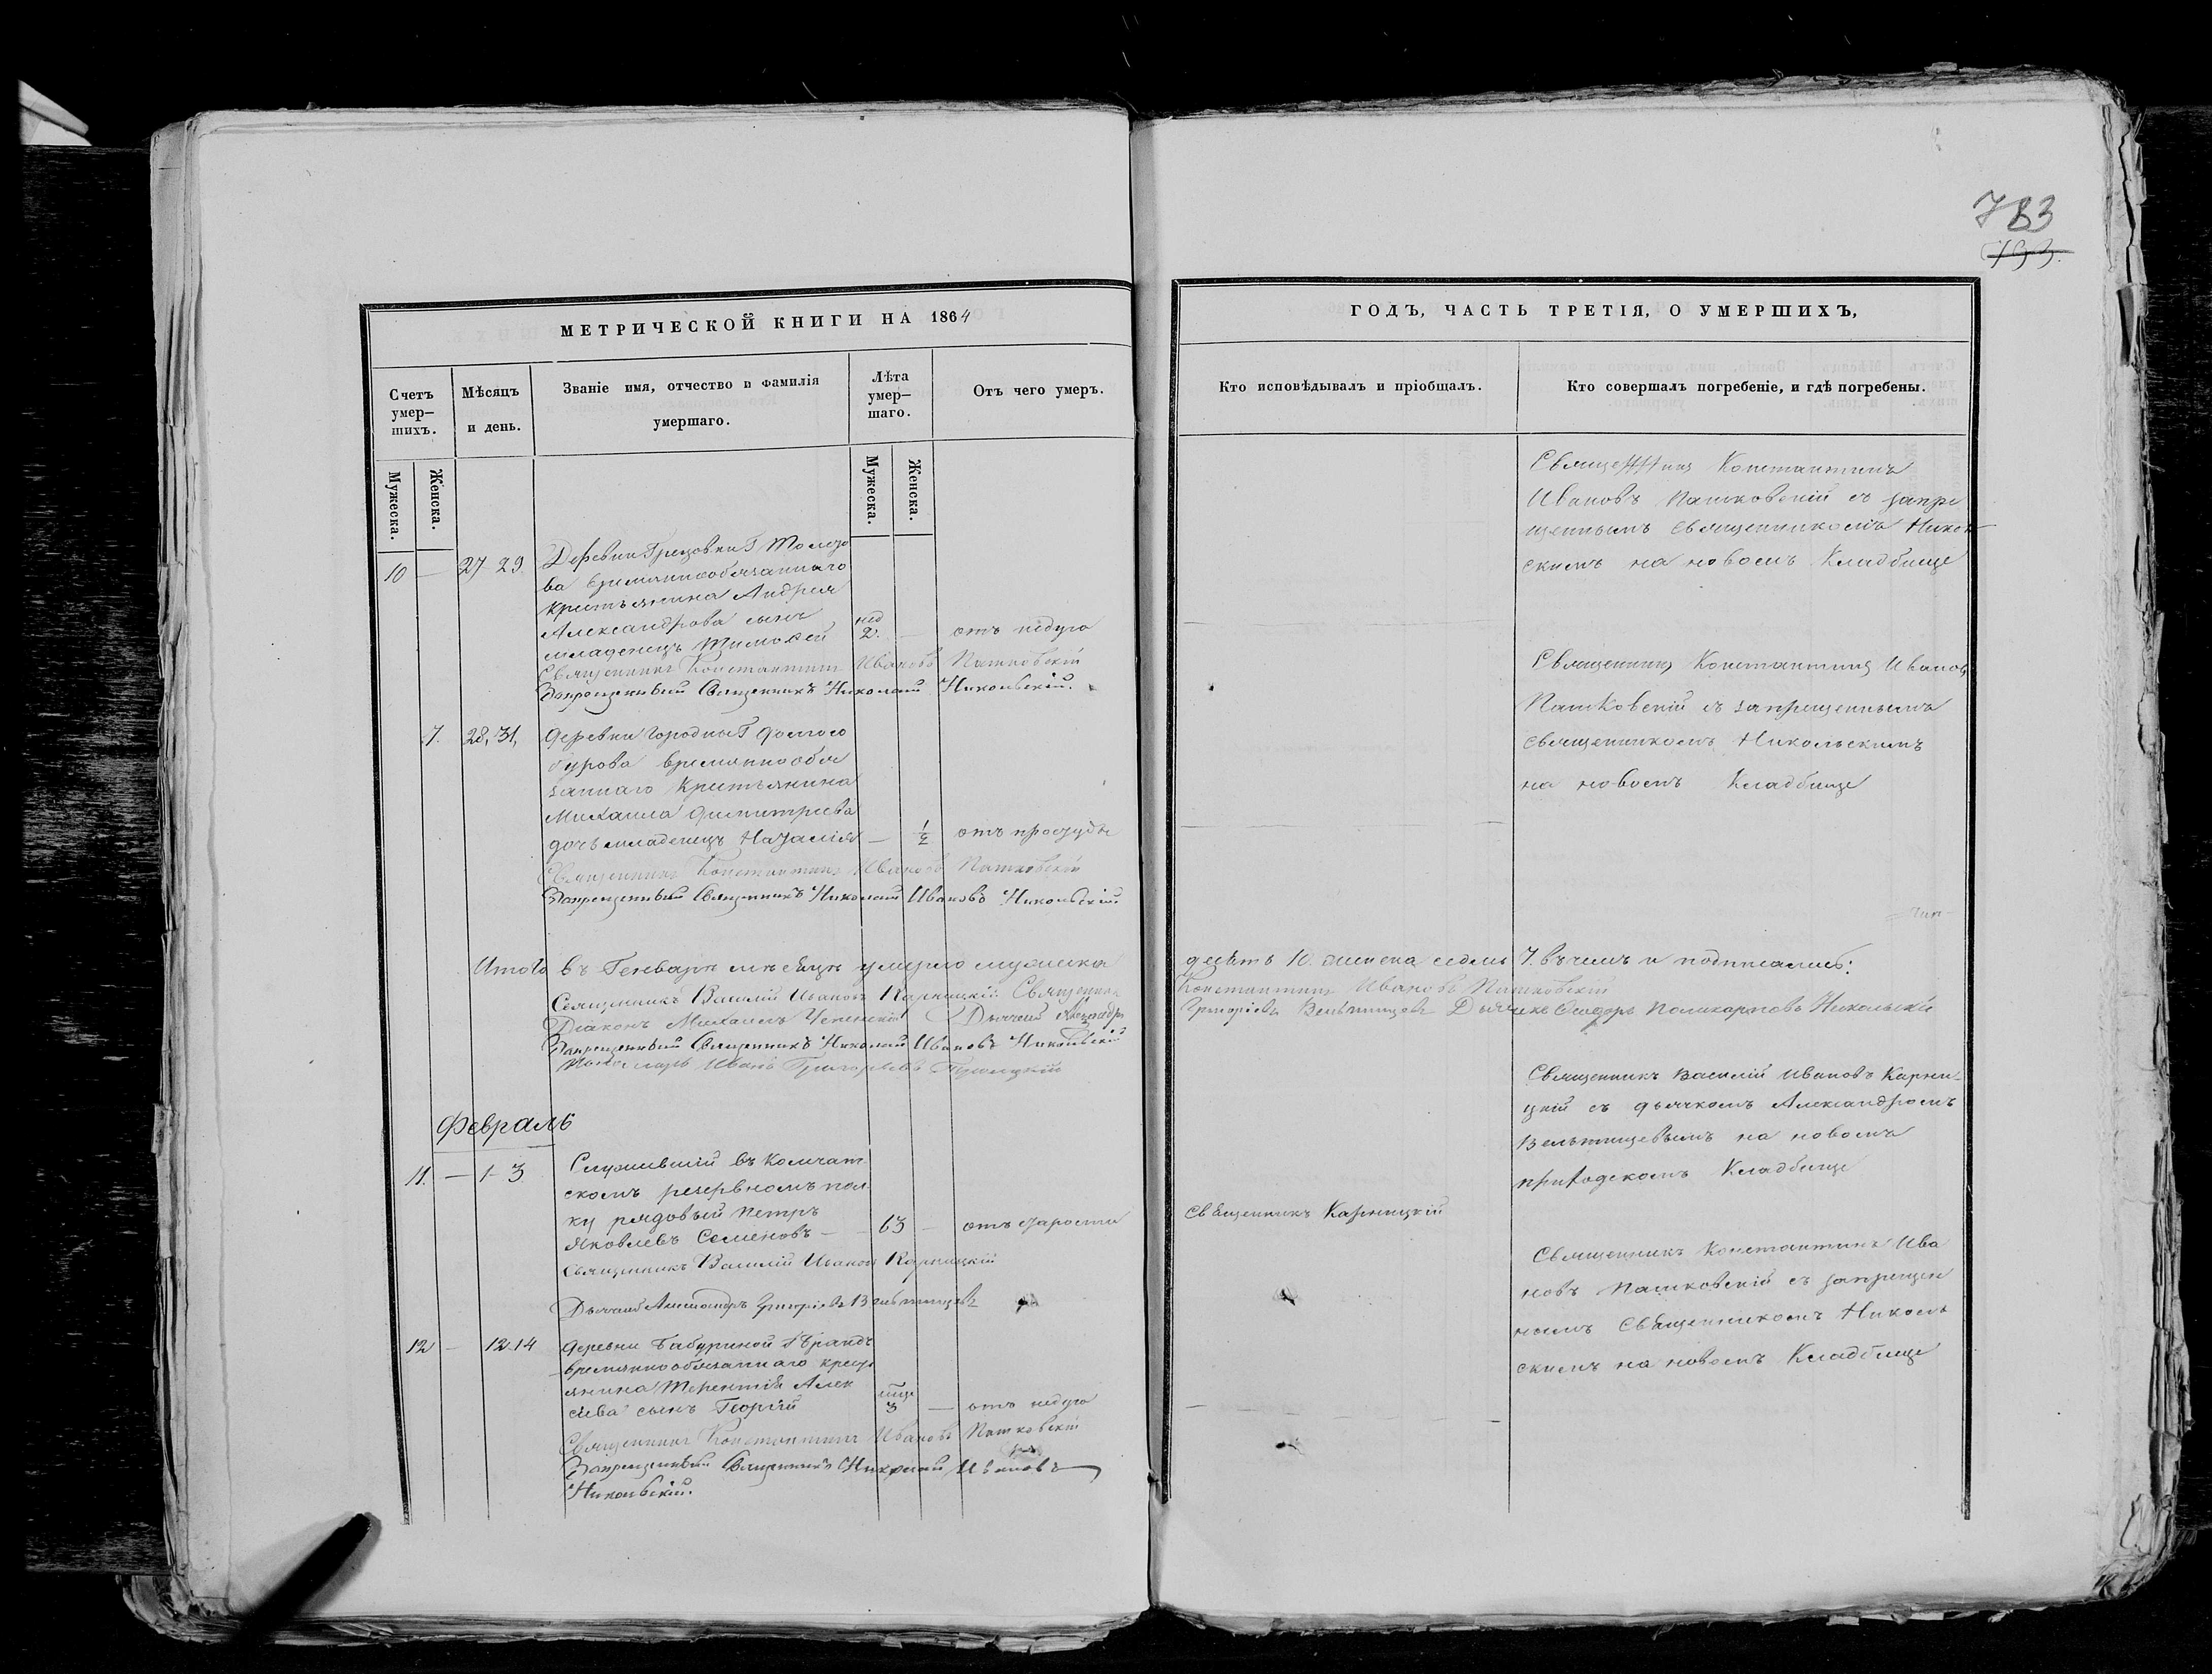 783
793.
МЕТРИЧЕСКОЙ КНИГИ НА 1864
Счетъ умер–шихъ.
Мѣсяцъ и день.
Званіе имя, отчество и фамилія умершаго.
Лѣта умер–шаго.
Отъ чего умеръ.
Мужеска.
Женска.
Мужеска.
Женска.
10 — 27 29. Деревни Грецовки Г.
ва временнообязаннаго
крестьянина Андрея
Александрова сынъ
младенецъ Тимофей нед 2. — отъ недуга
Священникъ Константинъ Ивановъ Пашковскій
Запрещенный Священникъ Николай Никольскій.
7. 28, 31, деревни Городны Г Долгоо
бурова временнообя
заннаго Крестьянина
Михаила Димитриева
дочь младенецъ Наталія — 1/2 отъ простуды
Священникъ Константинъ Ивановъ Пашковскій
Запрещенный Священникъ Николай Ивановъ Никольскій.
Итого въ Генварѣ мѣсяцѣ умерло мужеска
Священникъ Василій Ивановъ Карницкій Священник
Діаконъ Михаилъ Успенскій Дьячекъ Александръ
Запрещенный Священникъ Николай Ивановъ Никольскій
Пономарь Иванъ Григорьевъ
Февраль
11. — 1-3 Служившій въ Комчат
скомъ резервномъ пол
ку рядовый Петръ
Яковлевъ Семеновъ — 63 — отъ старости
Священникъ Василій Ивановъ Карницкій
Дьячекъ Александръ Григорьевъ Вельтищевъ
12 — 12.14 деревни Бабуриной Г Брандъ
временнообязаннаго крест
янина Терентія Алек
сѣева сынъ Георгій мцѣ 3 — отъ недуга
Священникъ Константинъ Ивановъ Пашковскій
Запрещенный Священникъ Николай Ивановъ
Никольскій.
ГОДЪ, ЧАСТЬ ТРЕТІЯ, О УМЕРШИХЪ,
Кто исповѣдывалъ и пріобщалъ.
Кто совершалъ погребеніе, и гдѣ погребены.
Священникъ Константинъ
Ивановъ Пашковскій съ запре
щеннымъ священникомъ Николь
скимъ на новомъ Кладбище
Священникъ Константинъ Ивановъ
Пашковскій съ запрещеннымъ
священникомъ Никольскимъ
на новомъ Кладбище
десять 10. женска седмь 7. въ чемъ и подписались:
Константинъ Ивановъ Пашковскій
Григорьевъ Вельтищевъ Дьячекъ Поликарповъ Никольскій
Священникъ Василій Ивановъ Карни-
цкій съ дьячкомъ Александромъ
Вельтищевымъ на новомъ
приходскомъ Кладбище
Священникъ Карницкій
Священникъ Константинъ Ива
новъ Пашковскій съ запрещен
нымъ Священникомъ Николь
скимъ на новомъ Кладбище